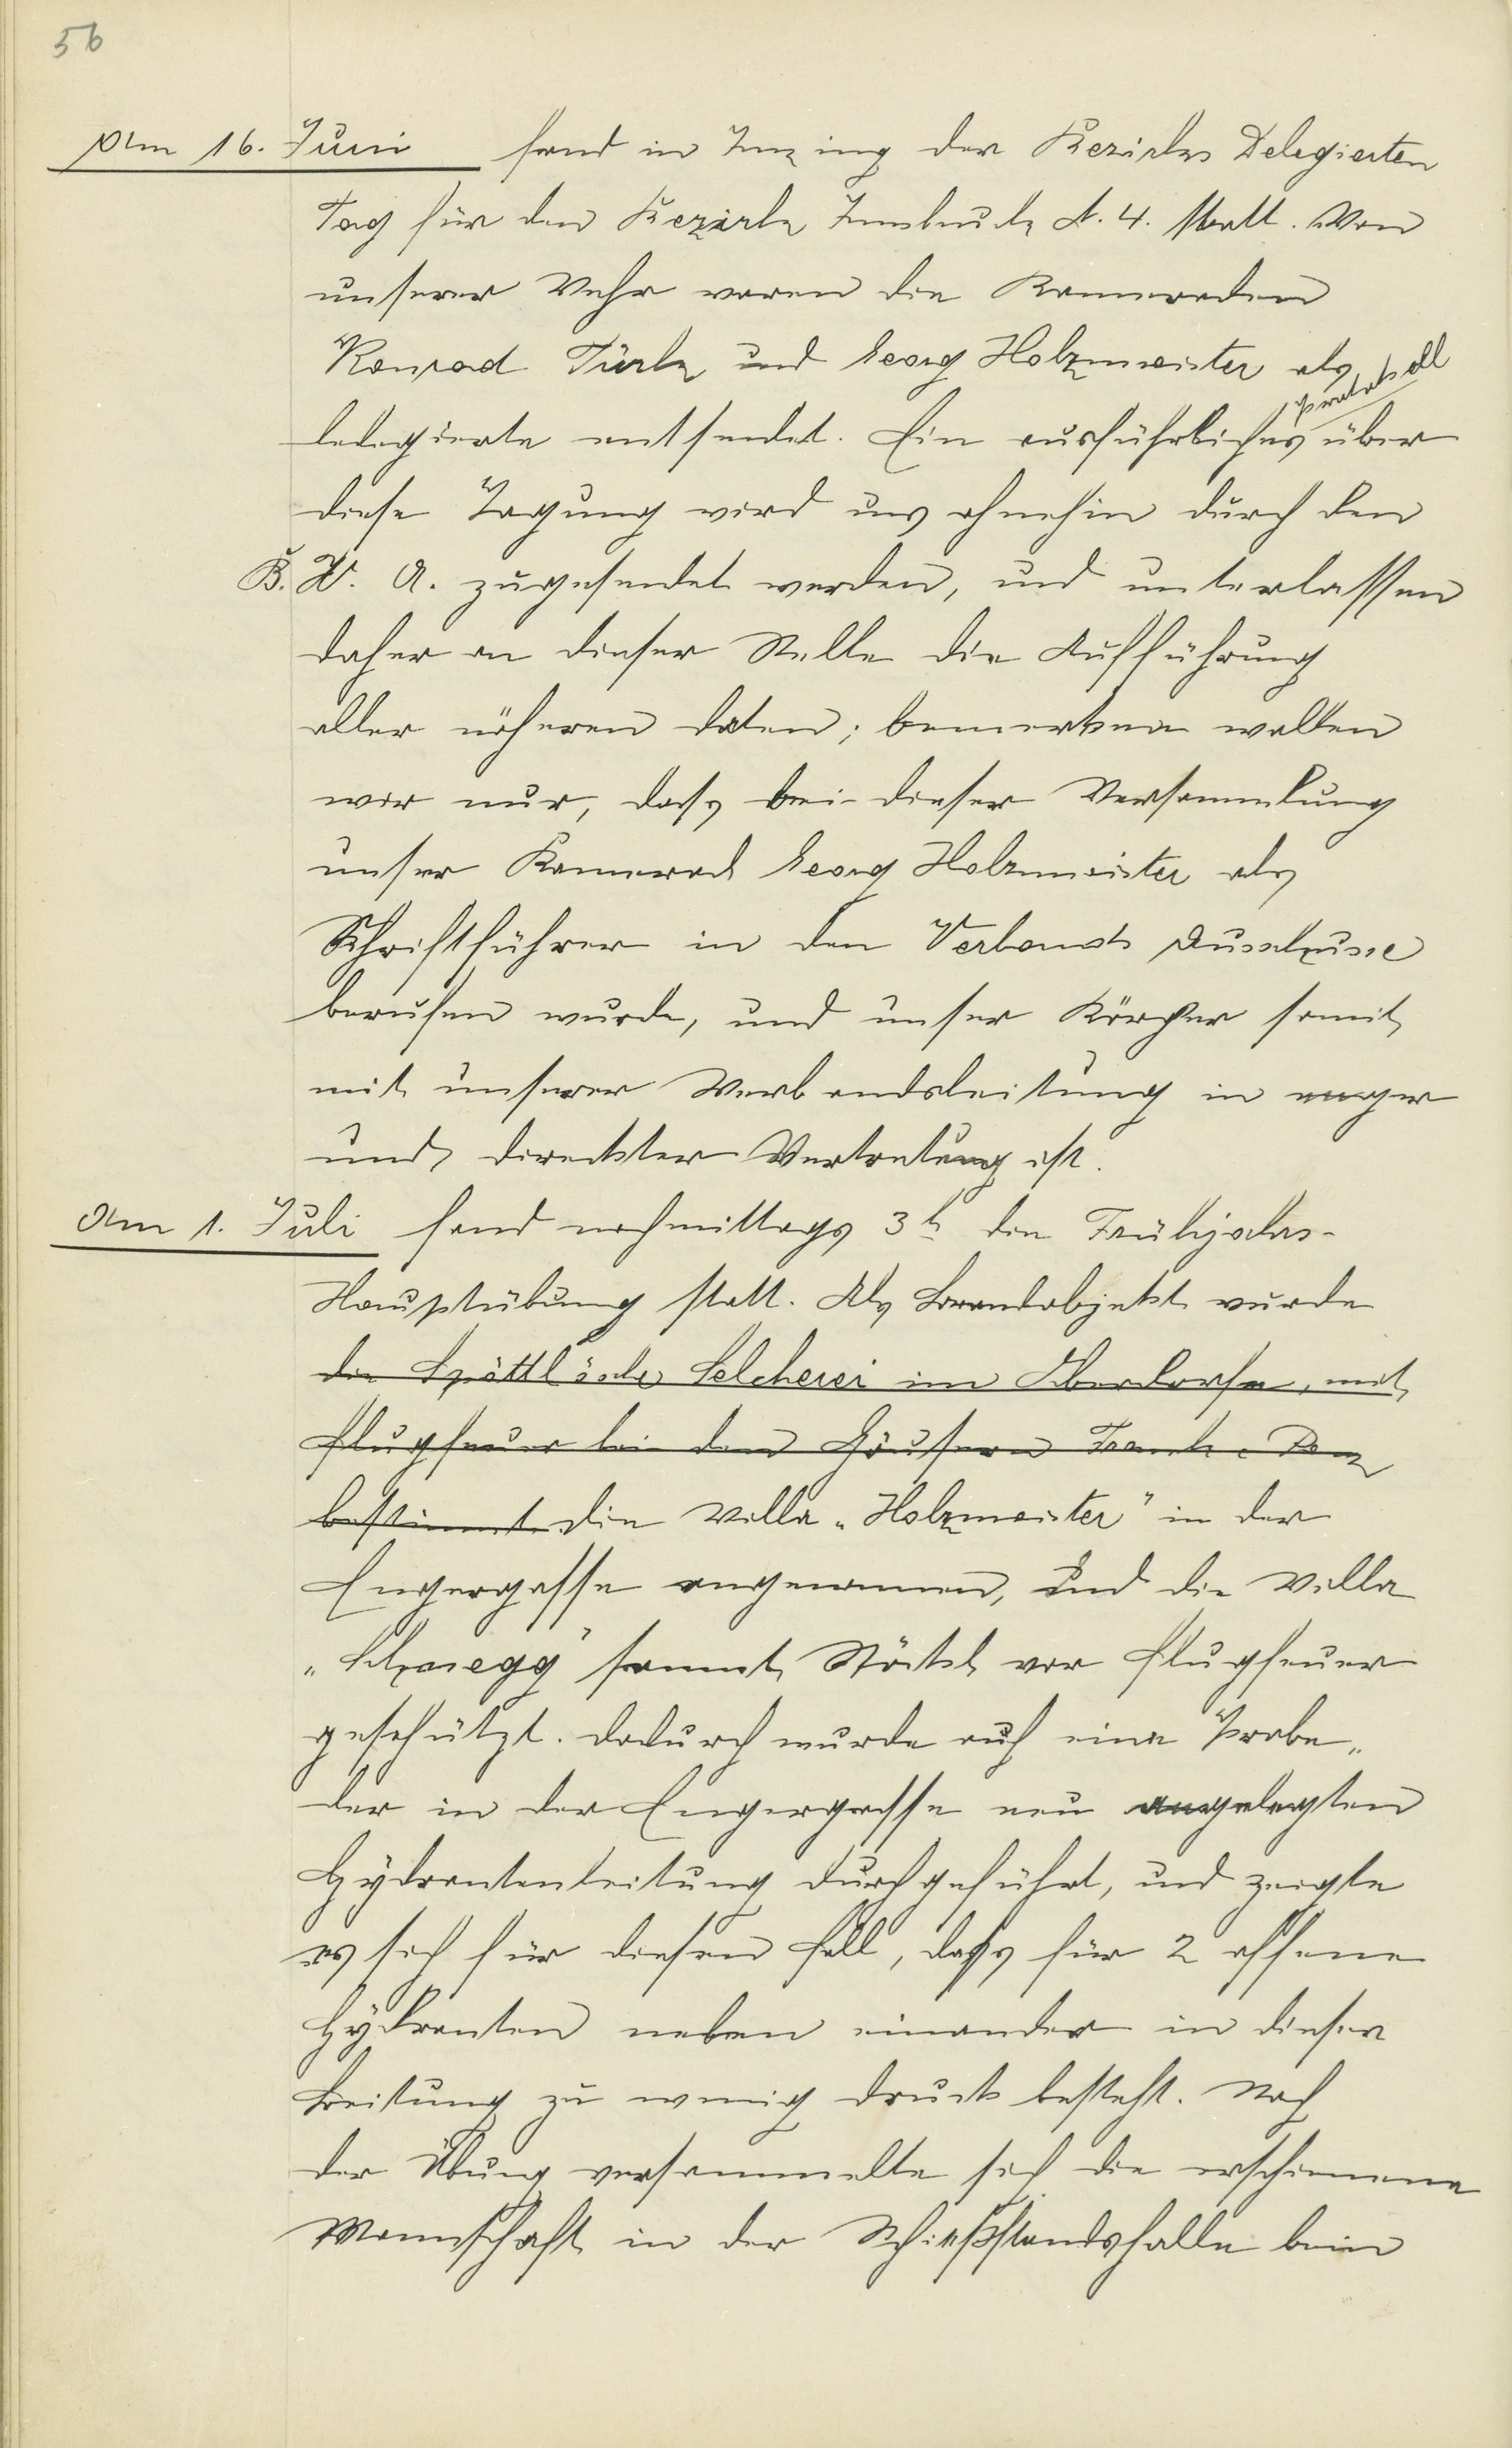 56
Am 16. Juni fand in Inzing der Bezirks Delegierten
Tag für den Bezirk Innsbruck N. 4. statt. Von
unserer Wehr waren die Kameraden
Konrad Türk und Georg Holzmeister als
Protokoll
delegierte entsendet. Ein ausführliches über
diese Tagung wird uns ohnehin durch den
B. V. A. zugesendet werden, und unterlassen
daher an dieser Stelle die Aufführung
aller näheren Daten; bemerken wollen
wir nur, dass bei dieser Versammlung
unser Kamerad Georg Holzmeister als
Schriftführer in den Verbands Ausschusse
berufen wurde, und unser Körper somit
mit unserer Verbandsleitung in enger
und direckter Vertretung ist.
Am 1. Juli fand nachmittags 3h die Frühjahrs-
Hauptübung statt. Als Brandobjekt wurde
die Selcherei im Oberdorfe, mit
Flugfeuer bei den Häusern Frank
bestimmt die Villa „Holzmeister" in der
Engergasse angenommen, und die Villa
„Schönegg" sammt Stöckl vor Flugfeuer
geschützt. Dadurch wurde auch eine Probe
der in der Engergasse neu angelegten
Hydrantenleitung durchgeführt, und zeigte
es sich für diesen Fall, dass für 2 offene
Hydranten neben einander in dieser
Leitung zu wenig Druck besteht. Nach
der Übung versammelte sich die erschienene
Mannschaft in der Schießstandshalle beim